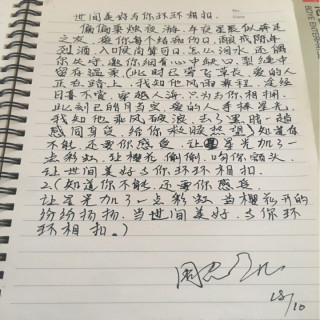 世间美好与你环环相扣.
偏偏秉烛夜游.午夜星辰似奔走
之友 爱你每个结痂伤口.酿成陈年
烈酒入喉尚算可口.怎么泪水还偶
尔失守.邀你细看心中缺口.裂缝中
留存温柔.(此时已莺飞草长.爱的人
正在路上.我知他风雨兼程.途经
日暮不赏.穿越人海.只为与你相拥.
此刻已皓月当空.爱的人手捧星光.
我知他乘风破浪.去了黑暗一趟
感同身受.给你救赎热望)知道你
不能.还要你感受.让星光加了一
点彩虹.让樱花偷偷.吻你额头.
让世间美好.与你环环相扣.
2.(知道你不能.还要你感受.
让星光加了一点彩虹 当樱花开的
纷纷扬扬.当世间美好.与你环
环相扣.)